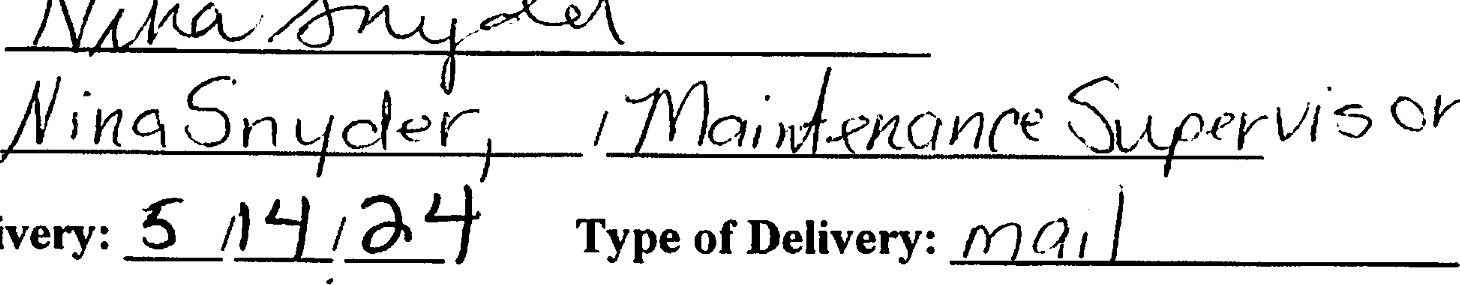 Nina Snyder
Nina Snyder, / Maintenance Supervisor
ivery: 5 / 14 / 24 Type of Delivery: mail